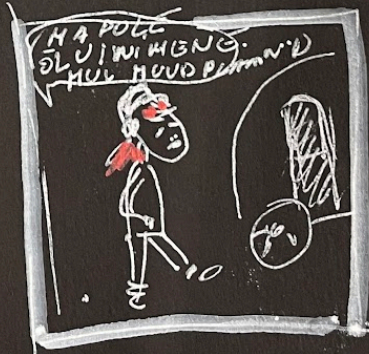 MA POLE
ÕLUIWIMENE.
MUL MUUD PLAANID